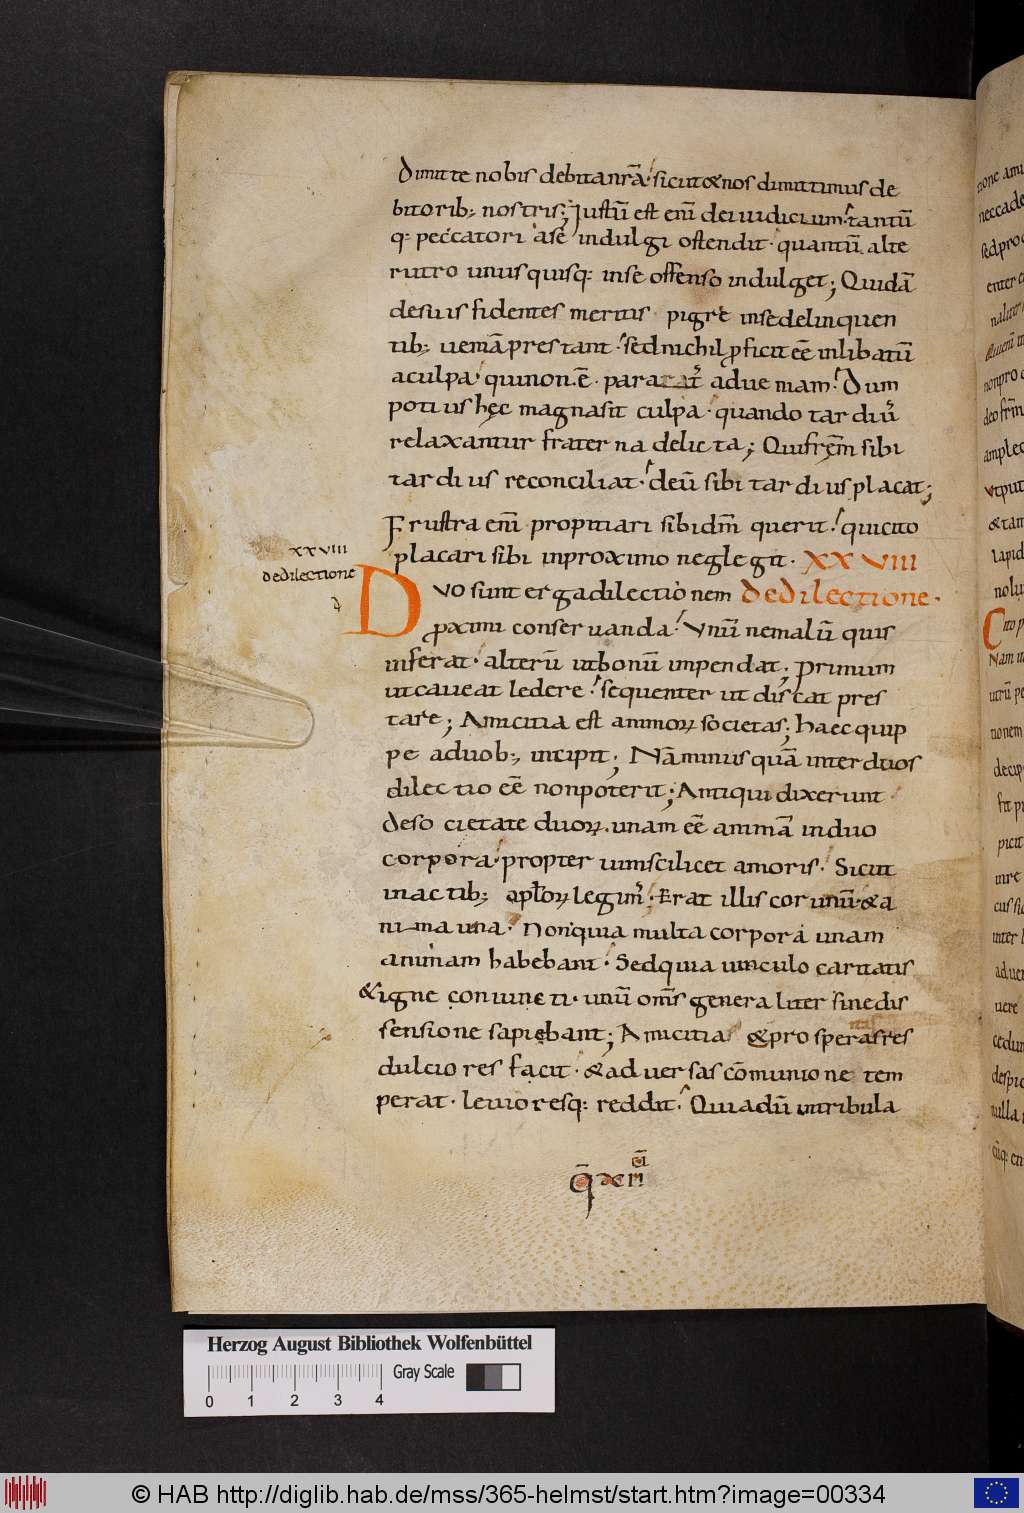 Dimitte nobis debita nr̄a· sicut & nos dimittimus de
bitorib; nostris; Iustū est eni̅ dei iudicium· tantū
q: peccatori ase indulgi ostendit· quantū alte
rutro unus quisq: inse offenso indulget; Quidā
desuis fidentes meritis pigre inse delinquen
tib; ueniā prestant· sed nichil ꝓficit eē inlibatū
aculpa· qui non. ē. parat᾽ adueniam· Dum
poti us hęc magna sit culpa· quando tardiu᾽
relaxantur fraterna delicta; Qui frēm sibi
tardius reconciliat· deū sibi tardius placat;
Frustra eni̅ propitiari sibi dm̄ querit· qui cito
placari sibi inproximo neglegit· XXVIII
xxviii
de dilectione
d
Duo sunt erga dilectionem De dilectione·
ꝓximi conseruanda· Vnū ne malū quis
inferat· alterū ut bonū impendat; primum
ut caueat ledere· sequenter ut discat pres
tare; Amicitia est animoꝝ societas; haec quip
pe aduob; incipit; Nā minus quā inter duos
dilectio eē non poterit; Antiqui dixerunt
de societate duoꝝ. unam eē animā in duo
corpora· propter uim scilicet amoris· Sicut
in actib; aplōꝝ legim᾽· Erat illis cor unū & a
nima una· Non quia multa corpora unam
animam habebant· Sed quia uinculo caritatis
& igne coniuncti· unū om̄s generaliter sine dis
sensione sapiebant; Amicitia & prosperas res
dulciores facit· & aduersas cōmunione tem
perat· leuioresq: reddit· Quia dū in tribula
Herzog August Bibliothek Wolfenbüttel
Gray Scale
0 1 2 3 4
© HAB http://diglib.hab.de/mss/365-helmst/start.htm?image=00334